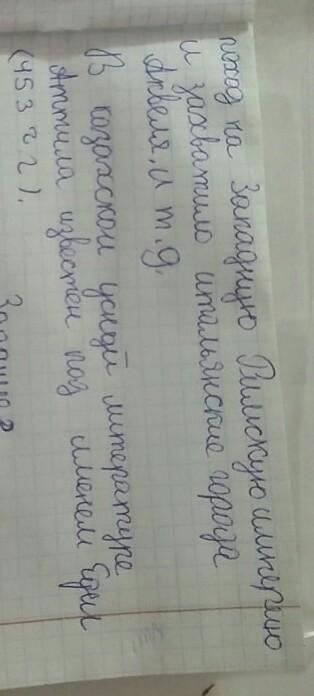 поход на Западную Римскую империю
и захватило итальянские города
Аквеля, и т.д.
В казахской усной литературе
Аттила известен под именем Едил
(453 г г).